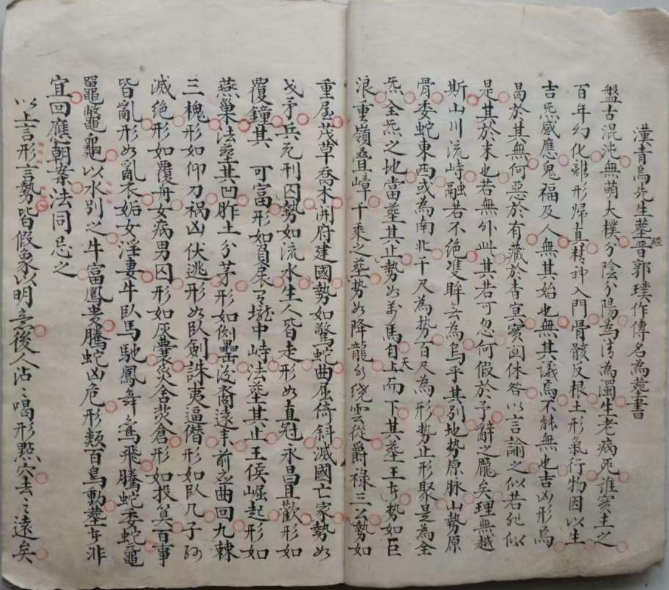 漢青烏先生葬經晉郭璞作傳名為葬書
盤古混沌無萌大樸分陰分陽為清為濁生老病死誰實主之
百年幻化離形歸真精神入門骨骸反根土形氣行物因以生
吉炁感應鬼福及人無其始也無其議焉不能無也吉凶形焉
曷於其無何惡於有藏於杳冥實関休咎以言諭之似若非似
是其於末也若無外此其若可忽何假於予辭之龐矣理無越
斯山川流峙融若不絕隻眸若為烏乎其別地勢原脉山勢原
骨委蛇東西或為南北千尺為勢百尺為形勢止形聚是為全
炁全炁之地當葬其止勢如萬馬自天而下其葬王者勢如巨
浪重嶺叠嶂千乘之葬勢如降龍水繞雲從爵祿三公勢如
重屋茂草喬木開府建國勢如驚蛇曲屈倚斜滅國亡家勢如
戈矛兵死刑囚勢如流水生人皆走形如直冠永昌且歡形如
覆鐘其 可富形如負扆有壠中峙法葬其止王侯崛起形如
燕巢法葬其凹胙土分茅形如側罍後崗遠來前應曲回九棘
三槐形如仰刀禍凶伏逃形如臥劍誅夷逼僭形如臥几子孫
滅絕形如覆舟女病男囚形如灰囊災舍焚倉形如投筭百事
皆亂形如亂衣妬女淫妻牛臥馬馳鳳舞鸞飛騰蛇委蛇黿
鼉鱉龜以水別之牛富鳳貴騰蛇凶危形類百鳥動葬皆非
宜回應朝案法同忌之
以上言形言勢皆假象以明之後人沾沾喝形點穴去之遠矣